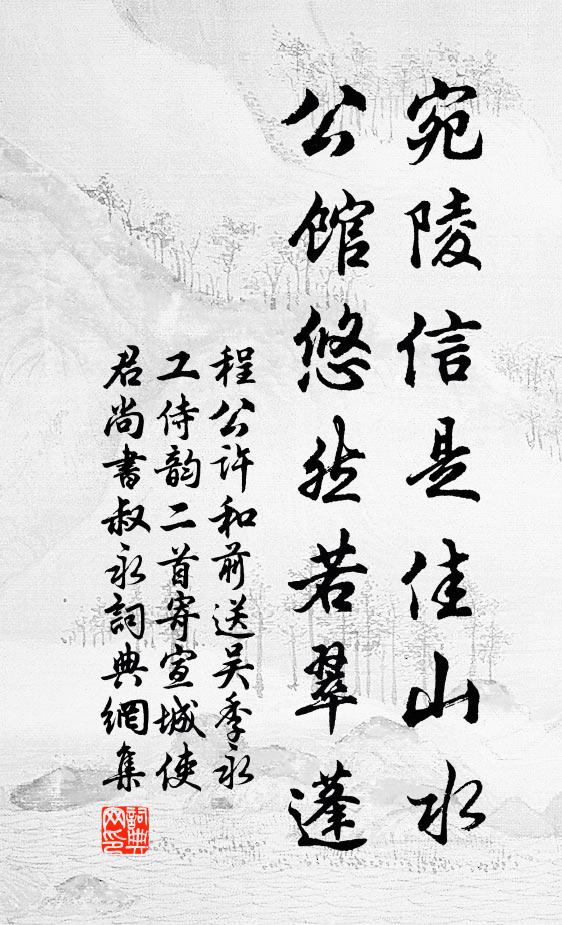 宛陵信是佳山水
公馆悠然若翠蓬
程公许和前送吴季永
工侍韵二首寄宣城使
君尚書叔永詞典網集
詞典
网印